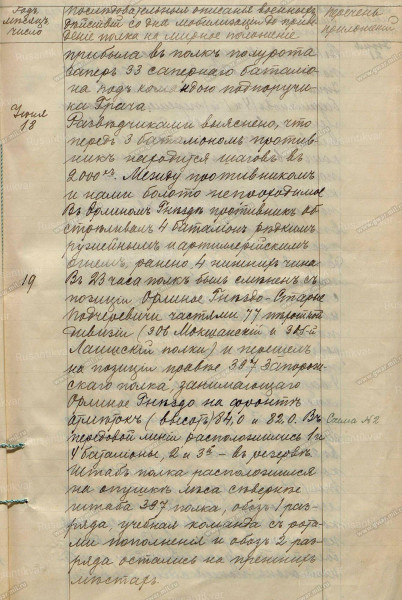 Годъ
мѣсяцъ
число
Послѣдовательное описаніе военныхъ
дѣйствій со дня мобилизаціи до приве-
денія полка на мирное положеніе
Перечень
приложеній
прибыла въ полкъ полурота
саперъ 33 сапернаго баталіо-
на подъ командою подпоручи-
ка Грача.
Іюня
18
Развѣдчиками выяснено, что
передъ 3 баталіономъ против-
никъ находится шаговъ въ
2000хъ. Между противникомъ
и нами болото непроходимое
Въ Орлиномъ Гнѣздѣ противникъ об-
стрѣливалъ 4 баталіонъ рѣдкимъ
ружейнымъ и артиллерійскимъ
огнемъ, ранено 4 нижнихъ чина
19
Въ 23 часа полкъ былъ смѣненъ съ
позиціи Орлиное Гнѣздо - Старые
Подчеревичи частями 77 пѣхотной
дивизіи (306 Мокшанскій и 305-й
Лаишскій полки) и перешелъ
на позиціи правѣе 387 Запорож-
скаго полка, занимающаго
Орлиное Гнѣздо на фронтѣ
отмѣтокъ (высотъ) 84,0 и 82.0. Въ
Схема №2
передовой линіи расположились 1 и
4 баталіоны, 2 и 3й - въ резервѣ.
Штабъ полка расположился
на опушкѣ лѣса сѣвернѣе
штаба 387 полка, обозъ 1 раз-
ряда, учебная команда съ рота-
ми пополненія и обозъ 2 раз-
ряда остались на прежнихъ
мѣстахъ.